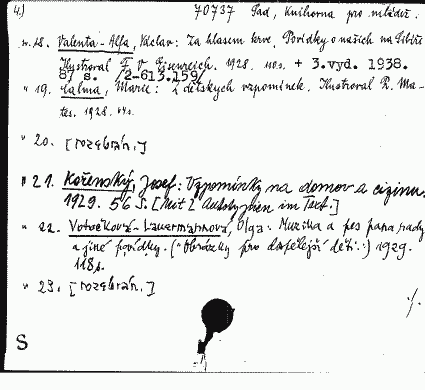 4.) 70737 Sad, Knihovna pro mládež.
sv. 18. Valenta-Alfa, Václav: Za hlasem krve. Povídky o našich na Sibiři
Ilustroval F. V. Eisenreich. 1928. 110s. + 3.vyd. 1938.
87 s. /2-613.159/
" 19. Calma, Marie: Z dětských vzpomínek. Ilustroval R. Ma-
tes. 1928. 44s.
" 20. [rozebrán.]
" 21. Kořenský, Josef: Vzpomínky na domov a cizinu.
1929. 56 S. [Mit 2 Autotypien im Text.]
" 22. Votočková-Lauermannová, Olga: Muzika a pes pana rady
a jiné povídky. (" Obrázky pro dospělejší děti.:) 1929.
118s.
" 23. [rozebrán.]
./.
S